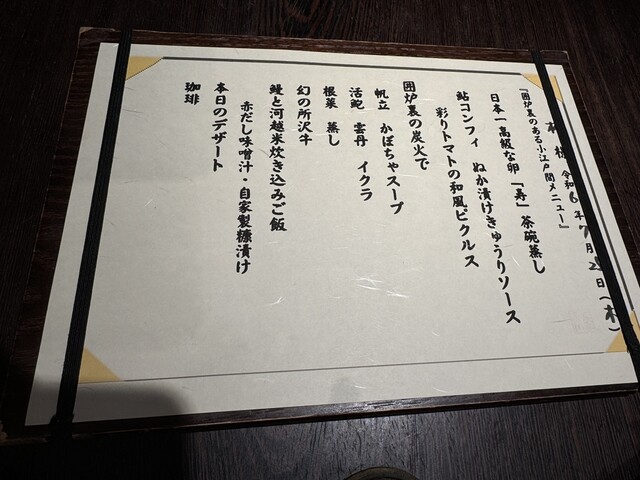 様 令和6年7月25日(木)
『囲炉裏のある小江戸間メニュー』
日本一高級な卵「寿」茶碗蒸し
鮎コンフィ ぬか漬けきゅうりソース
彩りトマトの和風ピクルス
囲炉裏の炭火で
帆立 かぼちゃスープ
活鮑 雲丹 イクラ
根菜 蒸し
幻の所沢牛
鰻と河越米炊き込みご飯
赤だし味噌汁・自家製糠漬け
本日のデザート
珈琲